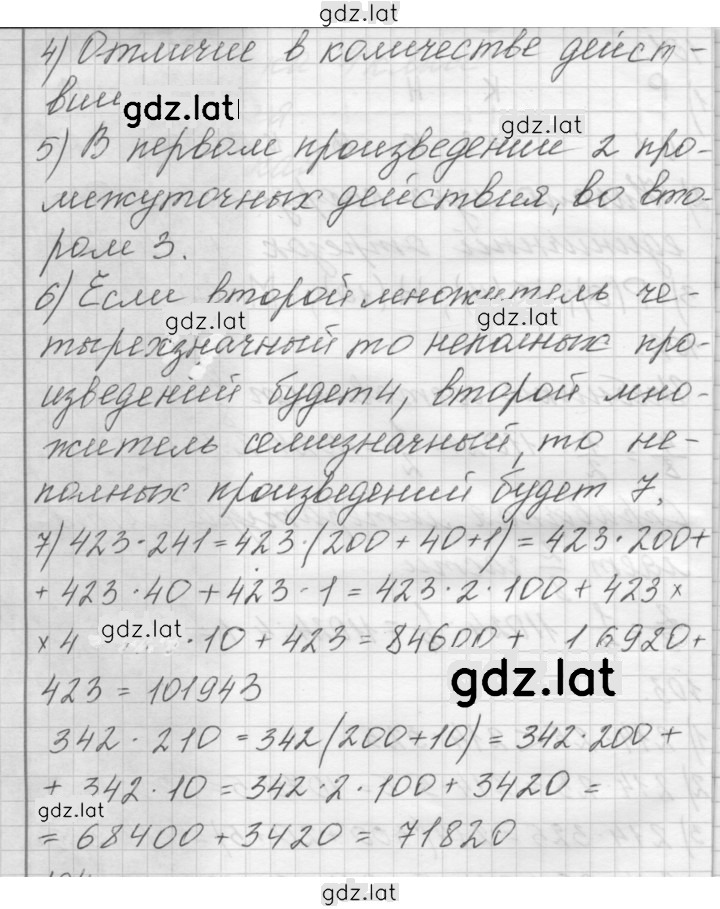 gdz.lat
4) Отличие в количестве дейст-
вии
gdz.lat
gdz.lat
5) В первом произведении 2 про-
межуточных действия, во вто-
ром 3.
6) Если второй множитель че-
gdz.lat
gdz.lat
тырехзначный то неполных про-
изведений будет 4, второй мно-
житель семизначный, то не-
полных произведений будет 7.
7) 423·241=423·(200+40+1)=423·200+
+423·40+423·1=423·2·100+423×
×4 gdz.lat ·10+423=84600+16920+
gdz.lat
423=101943
342·210=342(200+10)=342·200+
+342·10=342·2·100+3420=
gdz.lat
=68400+3420=71820
gdz.lat